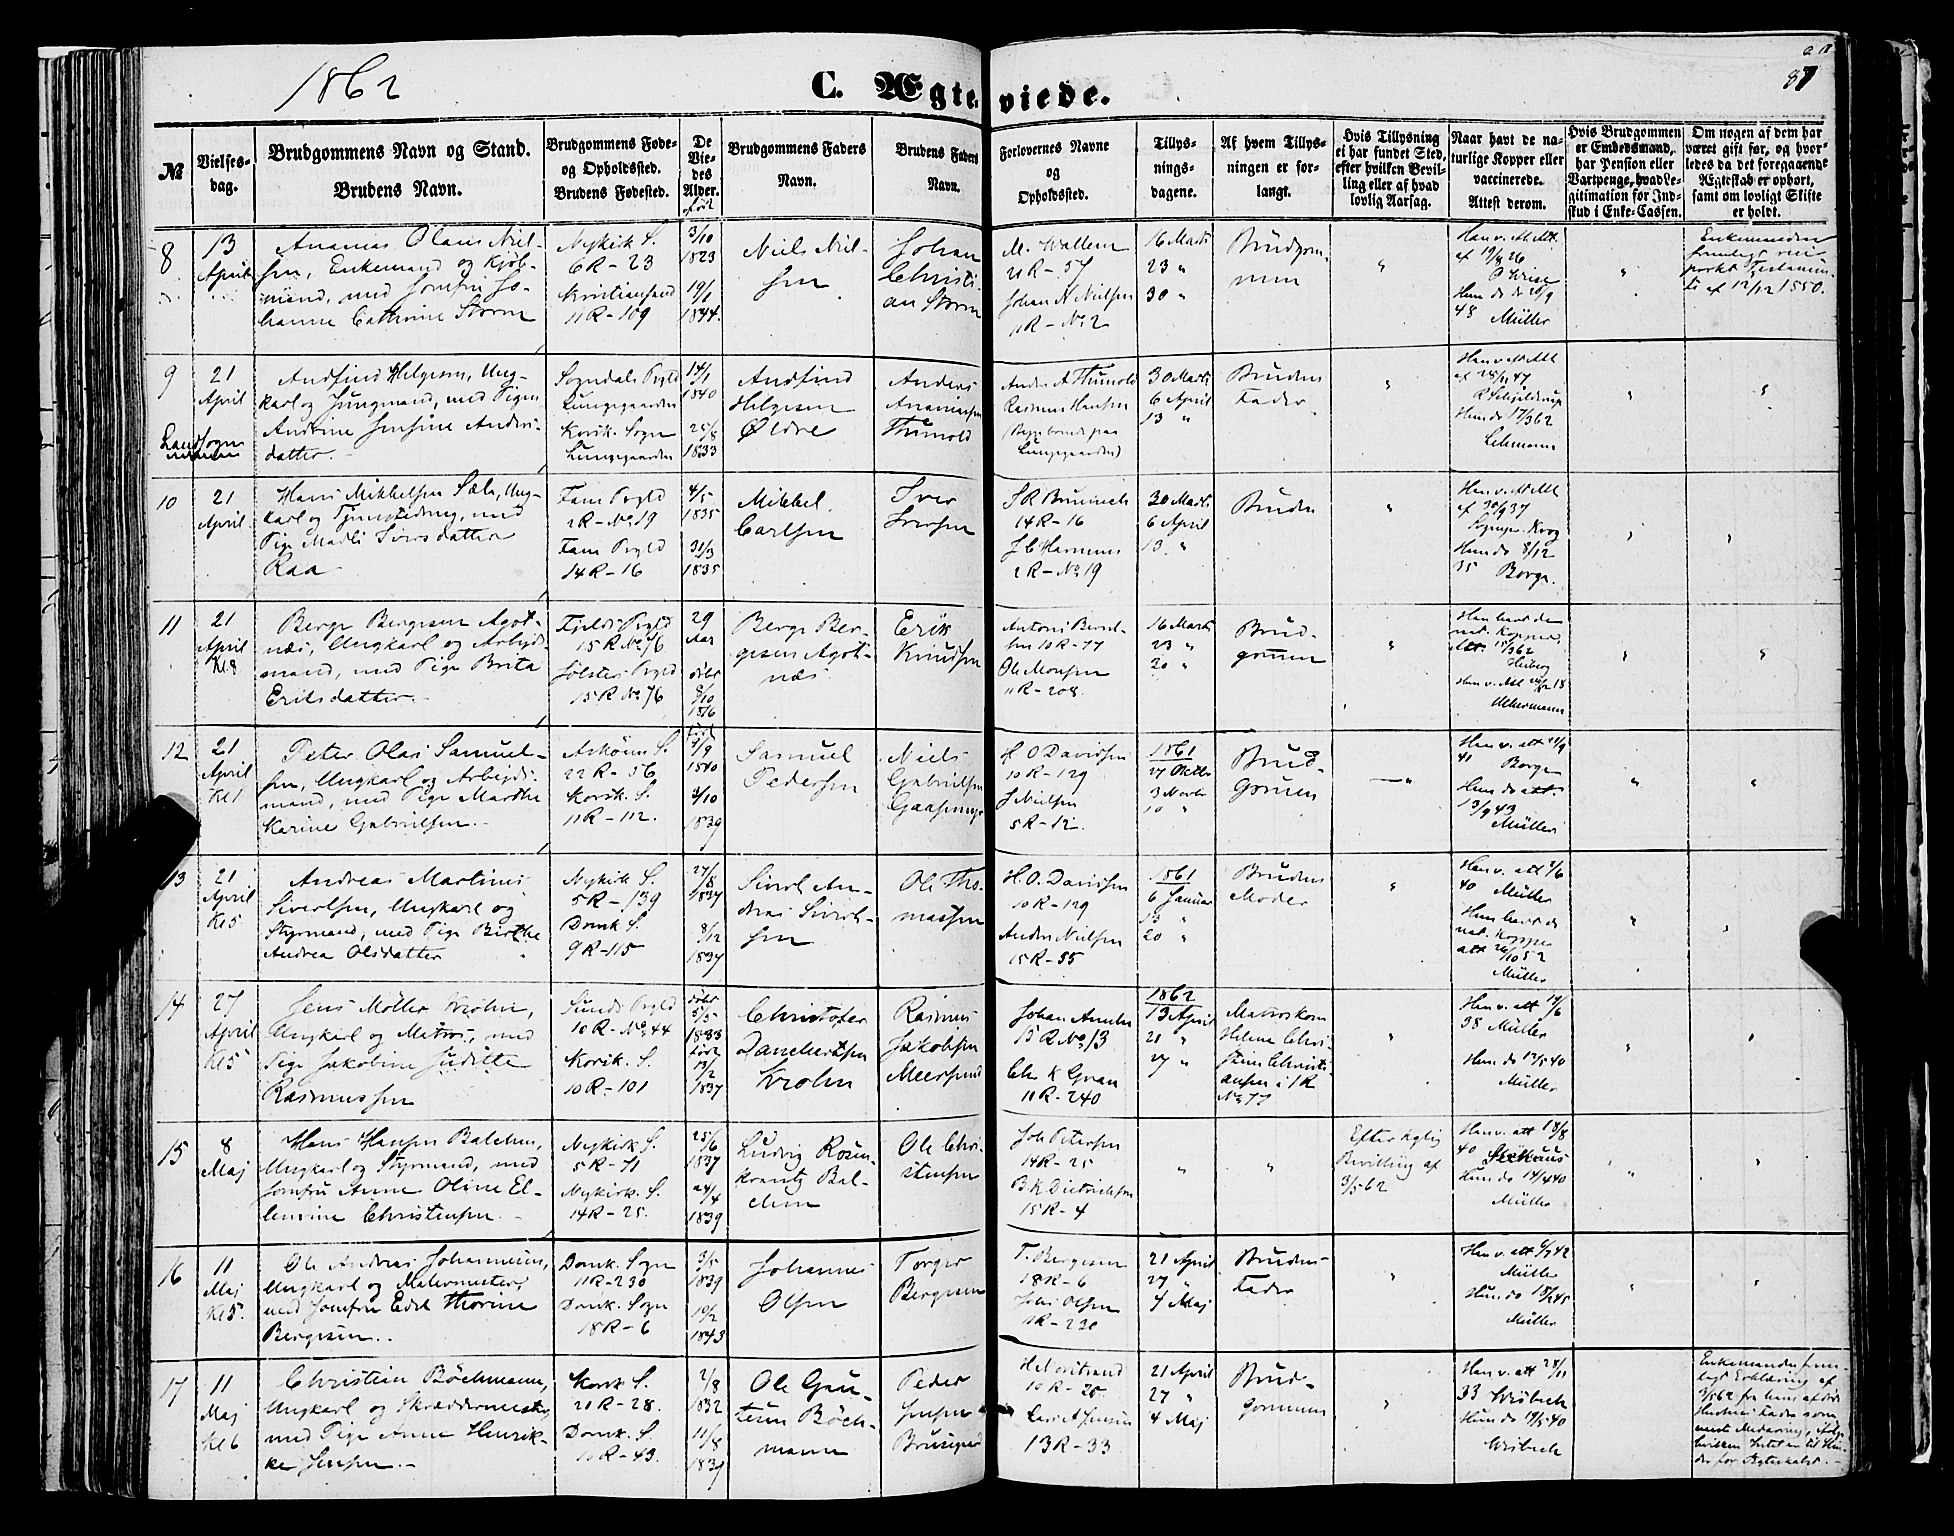 1862
C. Ægteviede.
87
№
Vielses-
dag.
Brudgommens Navn og Stand.
Brudens Navn.
Brudgommens Føde-
og Opholdssted.
Brudens Fødested.
De
Vie-
des
Alder.
født
Brudgommens Faders
Navn.
Brudens Faders
Navn.
Forlovernes Navne
og
Opholdssted.
Tillys-
nings-
dagene.
Af hvem Tillys-
ningen er for-
langt.
Hvis Tillysning
ei har fundet Sted,
efter hvilken Bevil-
ling eller af hvad
lovlig Aarsag.
Naar havt de na-
turlige Kopper eller
vaccinerede.
Attest derom.
Hvis Brudgommen
er Embedsmand,
har Pension eller
Vartpenge, hvad Le-
gitimation for Ind-
skud i Enke-Cassen.
Om nogen af dem har
været gift før, og hvor-
ledes da det foregaaende
Ægteskab er ophørt,
samt om lovligt Skifte
er holdt.
8
13
April
Ananias Olaus Niel-
sen, Enkemand og Kjøb-
mand, med Jomfru Jo-
hanne Cathrine Storm
Nykirk S.
6R - 23
Kristiansand
11R - 109
3/10
1823
19/1
1844.
Niels Niel-
sen
Johan
Christi-
an Storm
M. Wallem
21R - 57
Johan N Nielsen
11R - No 2
16 Marts
23 "
30 "
Brudgom-
men
Han v. Att.
48 Müller
af 12/12 1850.
9
21
April
Landsogn
Andfind Helgesen, Ung-
karl og Jungmand, med Pigen
Andrine Jensine Anders-
datter.
Sogndals Prgld
Lungegaarden
Korsk. Sogn
Lungegaarden
14/1
1840
25/8
1833
Andfind
Helgesen
Øldre
Anders
Ananiasen
Thumold
Anders A Thumold
Rasmus Hansen
Lungegaarden)
30 Marts
6 April
13 "
Brudens
Fader
Hun do 17/3 62
Lehmann
10
21
April
Hans Mikkelsen Sæle, Ung-
karl og Tjenestedreng, med
Pige Marthe Iversdatter
Raa
Fane Prgld
2R - No 19
Fane Prgld
14R - 16
4/5
1835
31/3
1835
Mikkel
Carlsen
Iver
Iversen
14R - 16
J C Hammer
2R - No 19
30 Marts
6 April
13 "
Bruden
Hun do 8/12
35 Borge.
11
21
April
Kl 8
Berge Bergesen Agot-
næs, Ungkarl og Arbejds-
mand, med Pige Brita
Eriksdatter.
Fjelds Prgld
15R No 76
Jølster Prgld
15R No 76
29
Aar
døbt
8/10
1816
Berge Ber-
gesen Agot-
næs
Erik
Knudsen
10R - 77
Ole Monsen
11R - 208
16 Marts
23 "
30 "
Brud-
gommen
Han havt de
nat. Kopper,
12
21
April
Kl 1
Peter Olai Samuel-
sen, Ungkarl og Arbejds-
mand, med Pige Marthe
Karine Gabrielsen.
Askøens S.
22R - 56
Korsk. S.
11R - 112.
1840
3/10
1839
Samuel
Pedersen
Niels
Gabrielsen
H. O Davidsen
10R - 129
J Nielsen
5R - 12.
1861
27 Oktbr
3 Novbr
10 "
Brud-
gommen
41 Borge
Hun do att.
13/9 43
Müller
13
21
April
Kl 5
Andreas Martinus
Sivertsen, Ungkarl og
Styrmand, med Pige Birthe
Andrea Olsdatter
Nykirk S.
5R - 139
Domk S.
9R - 115
27/8
1837
8/12
1837
Sivert An-
dreas Sivert-
sen
Ole Tho-
massen
H. O. Davidsen
10R - 129
Anders Nielsen
15R - 55
1861
6 Januar
13 "
20 "
Brudens
Moder
40 Müller
Hun havt de
nat. Kopper
att 26/10 52
Müller
14
27
April
Kl 5
Jens Møller Krohn,
Ungkarl og Matros, med
Pige Jakobine Juditte
Rasmussen
Sunds Prgld
10R - No 44
Korsk. S.
10R - 101
døbt
5/5
1833
født
13/2
1837
Christofer
Danckertsen
Krohn
Rasmus
Jakobsen
Johan Amelin
15 R No 13
Chr. K Gran
11R - 240
1862
13 April
21 "
27 "
Matroskone
Helene Chri-
stine Christi-
ansen i 1R
No 77
38 Müller
Hun do 12/5 40
Müller
15
8
Maj
Hans Hansen Balchen,
Ungkarl og Styrmand, med
Jomfru Anne Oline El-
lenvine Christensen.
Nykirk S.
5R - 71
Nykirk. S.
14R - 25.
25/6
1837
24/4
1839
Ludvig Rosen-
krantz Bal-
chen
Ole Chri-
stensen
Joh Petersen
14R - 25
B. K Diedrichsen
15R - 4
Efter kglig
Bevilling af
3/5 62
Han v. att 18/8
Hun do 14/4 40
Müller
16
11
Maj
Kl 5.
Ole Andreas Johannesen,
Ungkarl og Malermester,
med Jomfru Edel Thorine
Bergesen.
Domk. Sogn
11R - 230
Domk. Sogn
18R - 6
3/5
1839
19/2
1843
Johannes
Olsen
Torger
Bergesen
T. Bergesen
18R - 6
Johs Olsen
11R - 230
21 April
27 "
4 Maj
Brudens
Fader
Müller
Hun do 18/2 45
Müller
17
11
Maj
Kl 6
Christian Böchmann,
Ungkarl og Skræddermester
med Pige Anne Henrik-
ke Jensen.
Korsk S.
21R - 28.
Domk. S.
11R - 43.
2/8
1832
11/8
1839
Ole Gun-
Böch-
mann
Peder
Jensen
10 R - 20
13R - 33
21 April
27 "
4 Maj
Brud-
gommen
Han v. att 28/11
33 Wisbech
Hun do 19/5 40
Wisbech